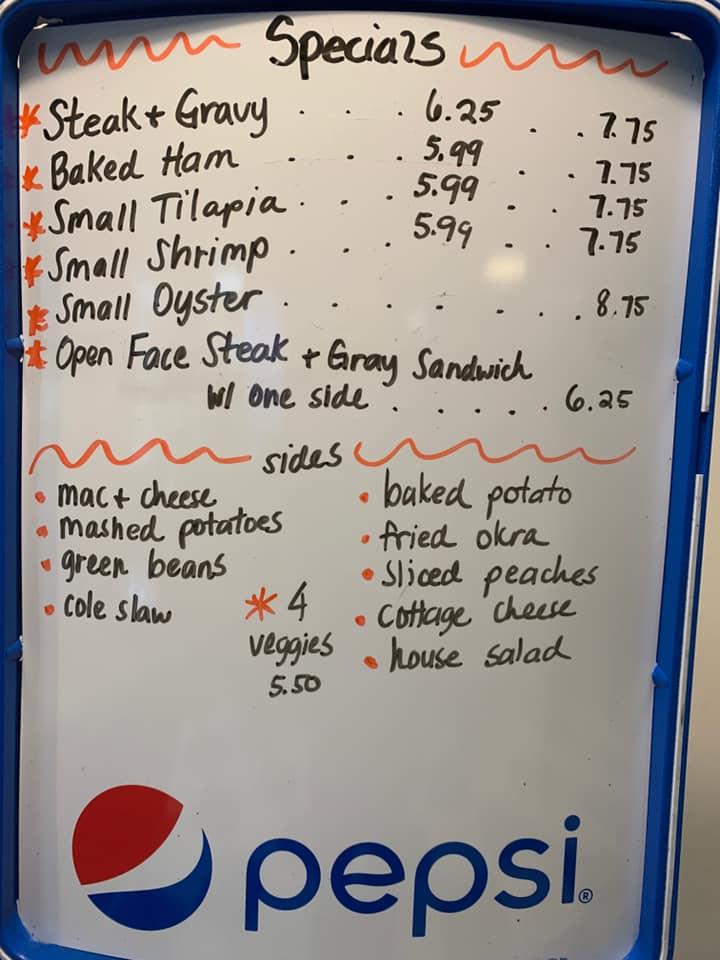 Specials
* Steak + Gravy . . . 6.25 . . 7.75
* Baked Ham . . . 5.99 . . 7.75
* Small Tilapia . . . 5.99 . . 7.75
* Small Shrimp . . . 5.99 . . 7.75
* Small Oyster . . . . . . . 8.75
* Open Face Steak + Gray Sandwich
w/ one side . . . . . 6.25
sides
• mac + cheese
• mashed potatoes
• green beans
• cole slaw
* 4
veggies
5.50
• baked potato
• fried okra
• sliced peaches
• cottage cheese
• house salad
pepsi®